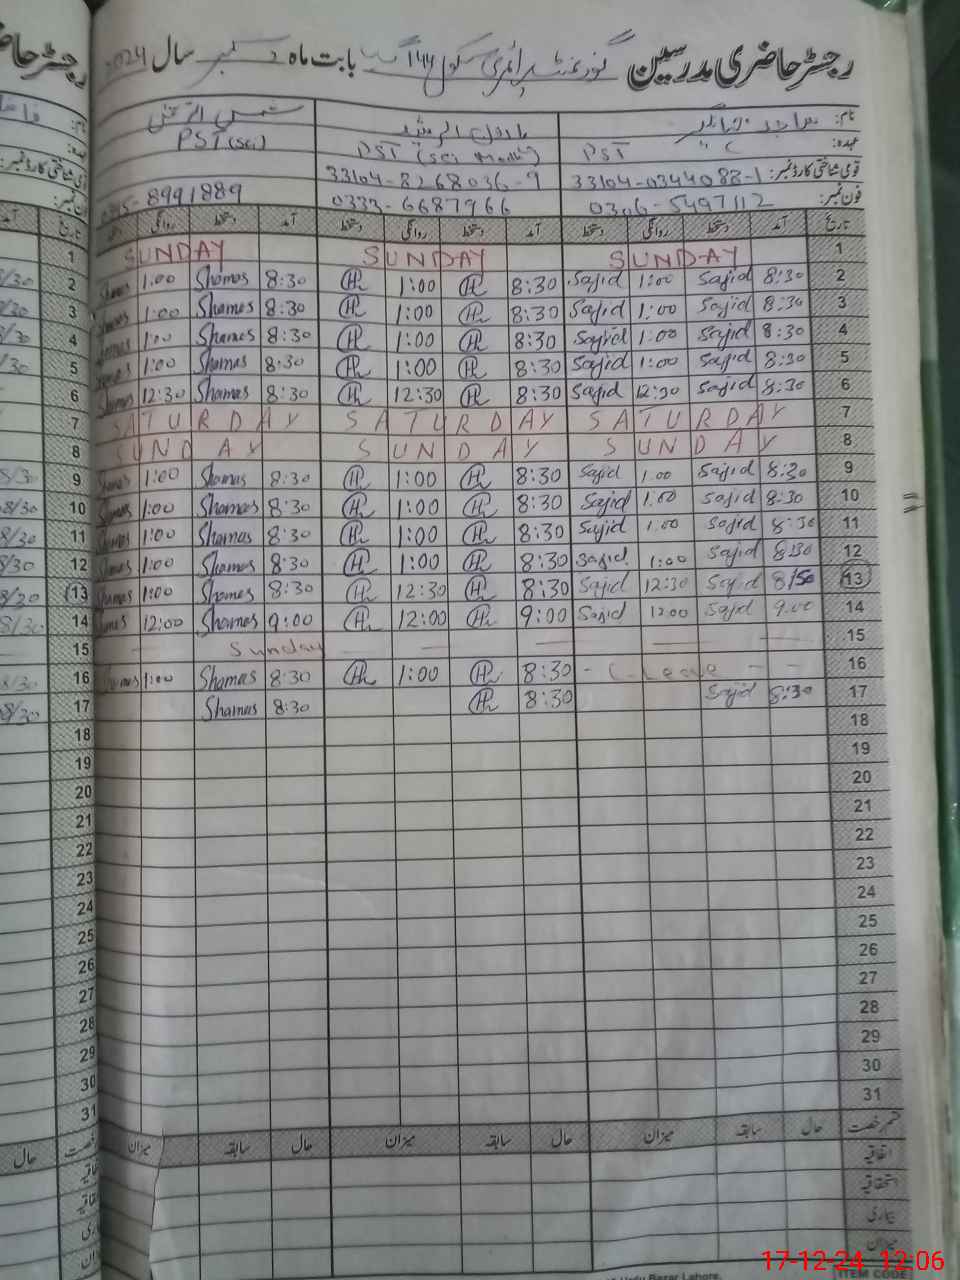 رجسٹر حاضری مدرسین گورنمنٹ پرائمری سکول 144 گ ب بابت ماہ دسمبر سال 2024
نام: ساجد جہانگیر ہارون الرشید شمس الرحمٰن
عہدہ: PST PST (Sci Math) PST (Sci)
قومی شناختی کارڈ نمبر: 33104-0344088-1 33104-8268036-9
فون نمبر: 0306-5497112 0333-6687966 8991889
تاریخ آمد دستخط روانگی دستخط آمد دستخط روانگی دستخط آمد دستخط روانگی
1 SUNDAY SUNDAY SUNDAY
2 8:30 Sajid 1:00 Sajid 8:30 1:00 8:30 Shamas 1:00
3 8:30 Sajid 1:00 Sajid 8:30 1:00 8:30 Shamas 1:00
4 8:30 Sajid 1:00 Sajid 8:30 1:00 8:30 Shamas 1:00
5 8:30 Sajid 1:00 Sajid 8:30 1:00 8:30 Shamas 1:00
6 8:30 Sajid 12:30 Sajid 8:30 12:30 8:30 Shamas 12:30
7 SATURDAY SATURDAY SATURDAY
8 SUNDAY SUNDAY SUNDAY
9 8:30 Sajid 1:00 Sajid 8:30 1:00 8:30 Shamas 1:00
10 8:30 Sajid 1:00 Sajid 8:30 1:00 8:30 Shamas 1:00
11 8:30 Sajid 1:00 Sajid 8:30 1:00 8:30 Shamas 1:00
12 8:30 Sajid 1:00 Sajid 8:30 1:00 8:30 Shamas 1:00
13 8/50 Sajid 12:30 Sajid 8:30 12:30 8:30 Shamas 1:00
14 9:00 Sajid 12:00 Sajid 9:00 12:00 9:00 Shamas 12:00
15 Sunday
16 Leave 8:30 1:00 8:30 Shamas 1:00
17 8:30 Sajid 8:30 8:30 Shamas
18
19
20
21
22
23
24
25
26
27
28
29
30
31
قسم رخصت حال سابقہ میزان حال سابقہ میزان حال سابقہ میزان
اتفاقیہ
استحقاقیہ
بیماری
میزان
Urdu Bazar Lahore.
ITEM CODE
17-12-24 12:06